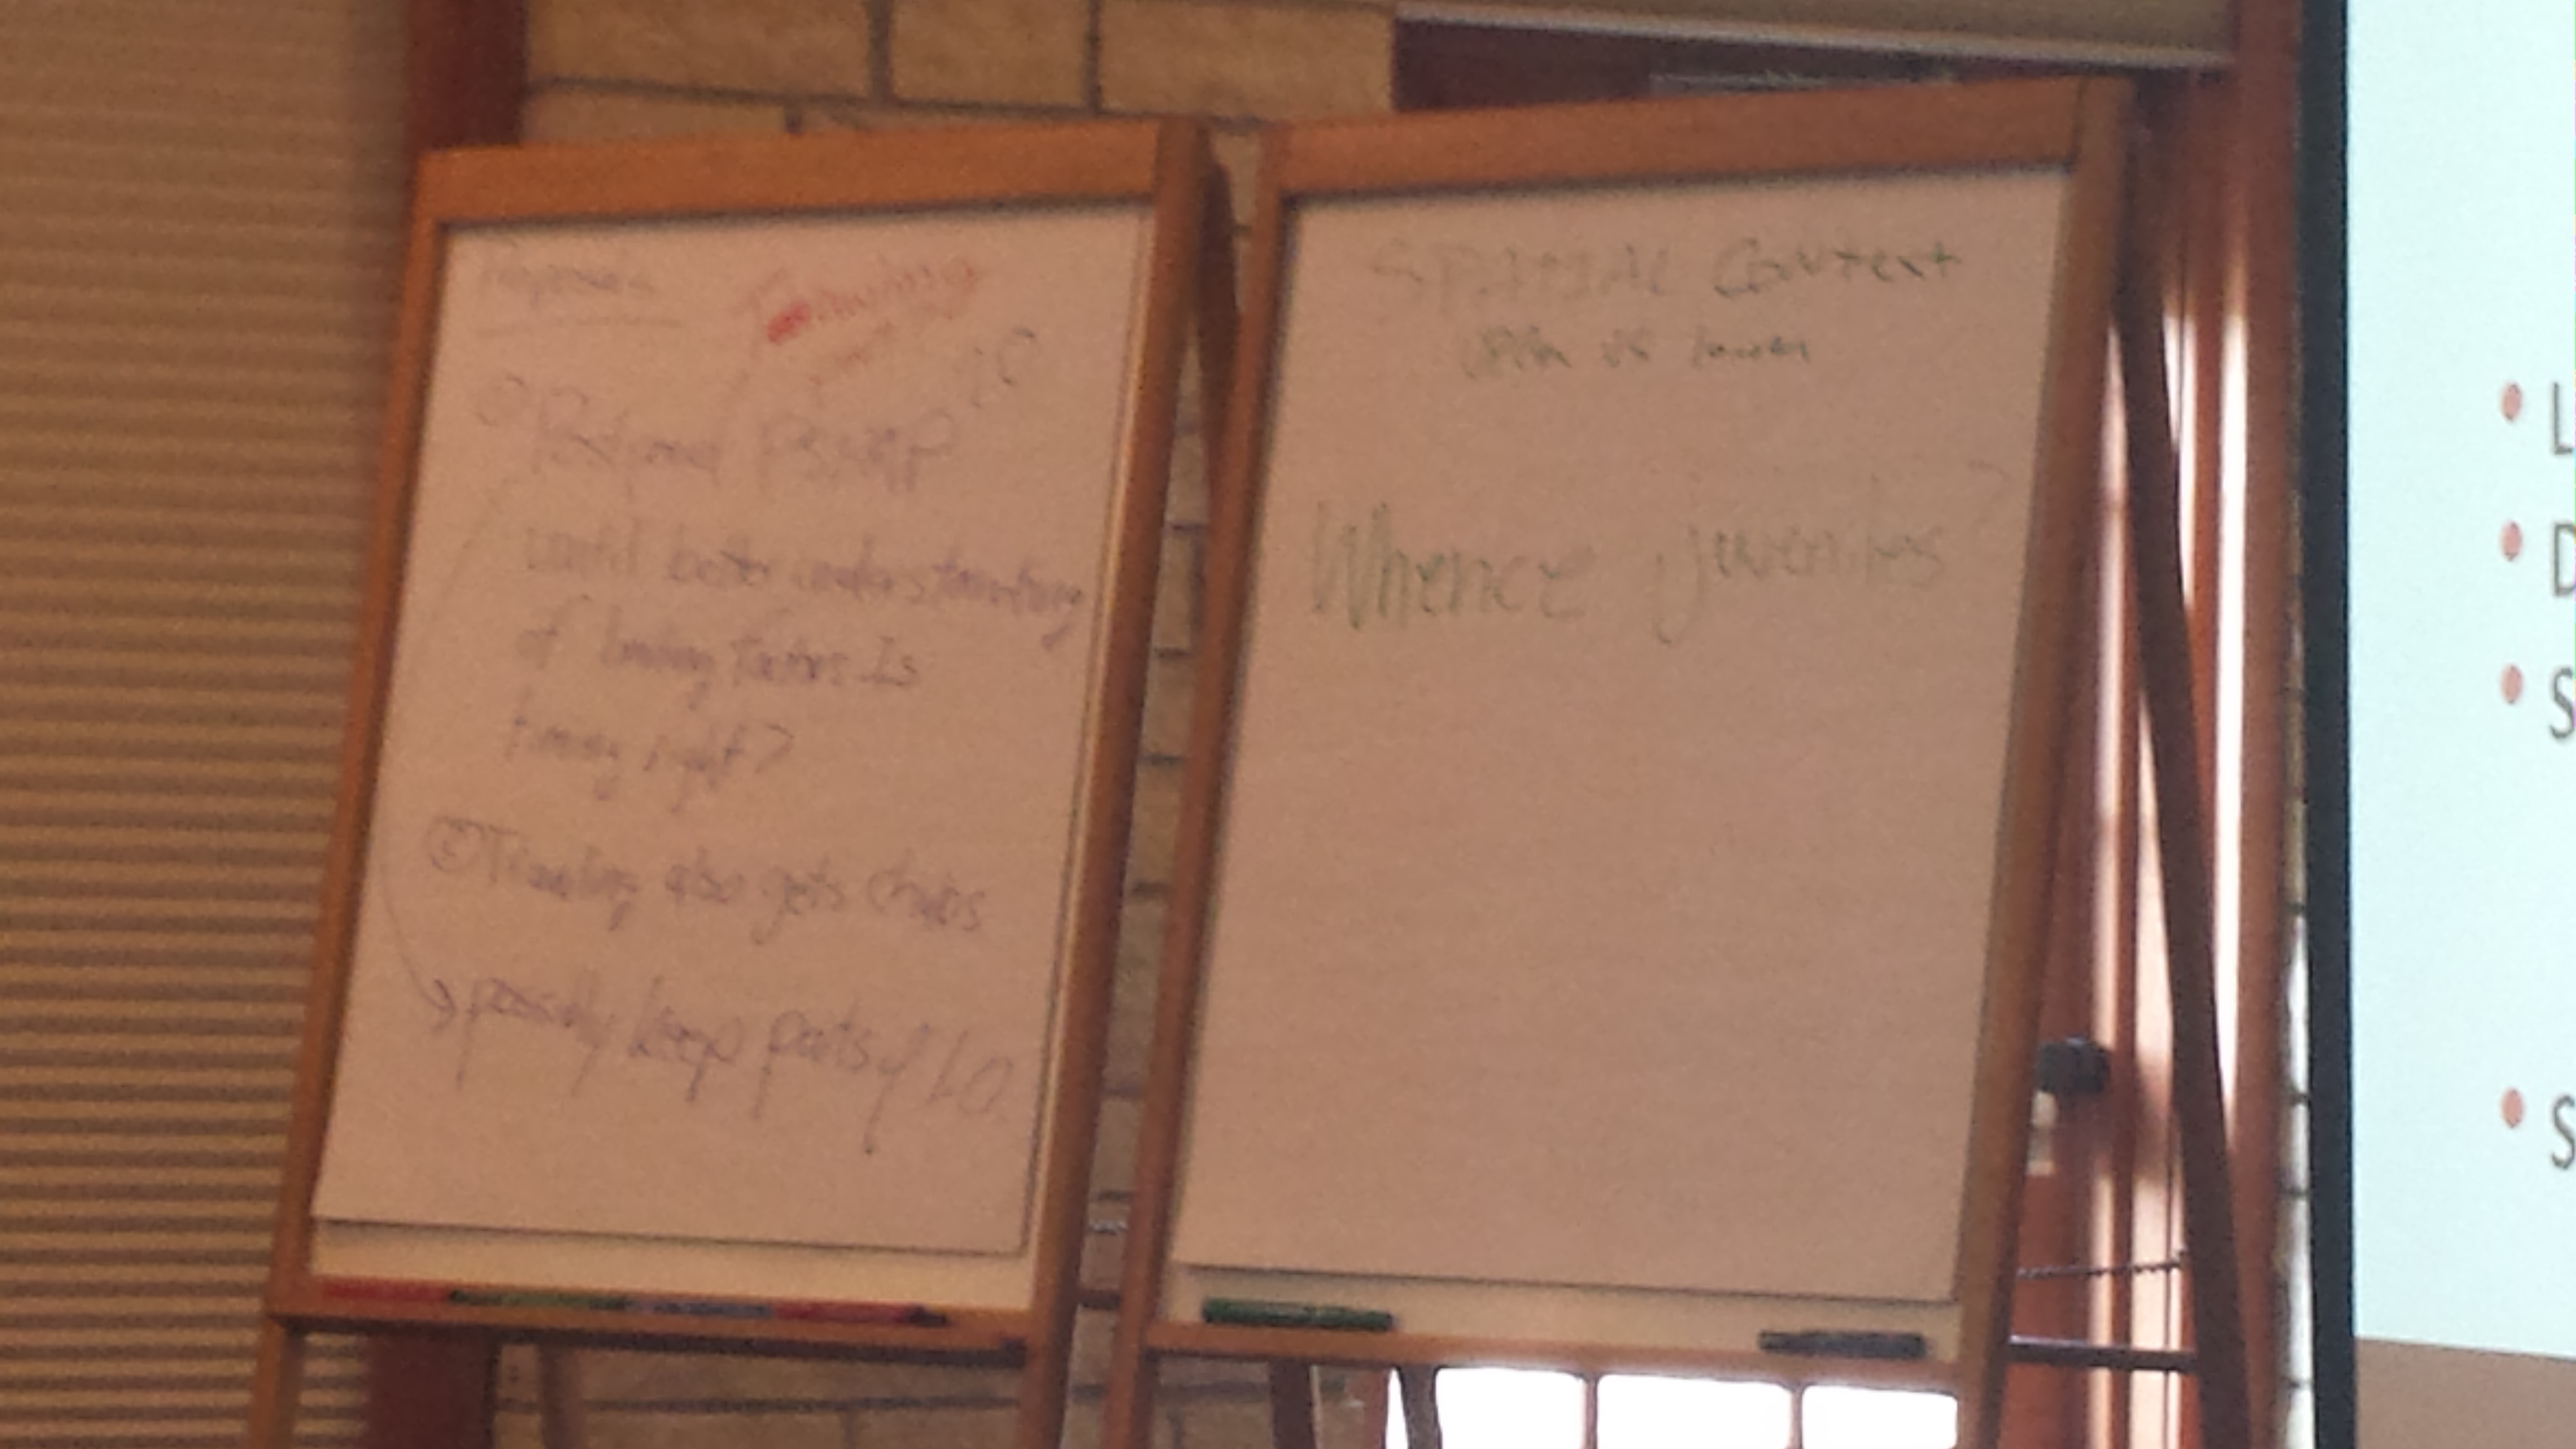 Proposals
Trawling
① Postpone
until better understanding
of limiting factors Is
timing right?
② Trawling also gets chubs
possibly keep parts of
SPATIAL Context
vs lower
Whence juveniles?
L
D
S
S